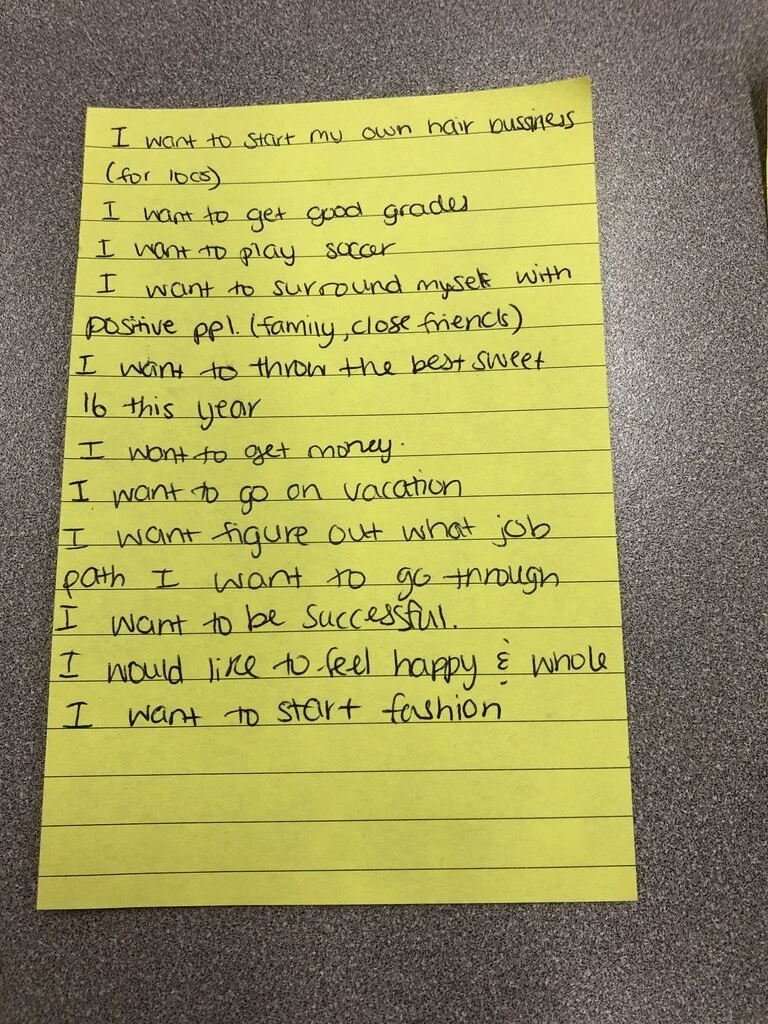 I want to start my own hair bussiness
(for locs)
I want to get good grades
I want to play soccer
I want to surround myself with
positive ppl. (family, close friends)
I want to throw the best sweet
16 this year
I want to get money.
I want to go on vacation
I want figure out what job
path I want to go through
I want to be successful.
I would like to feel happy & whole
I want to start fashion